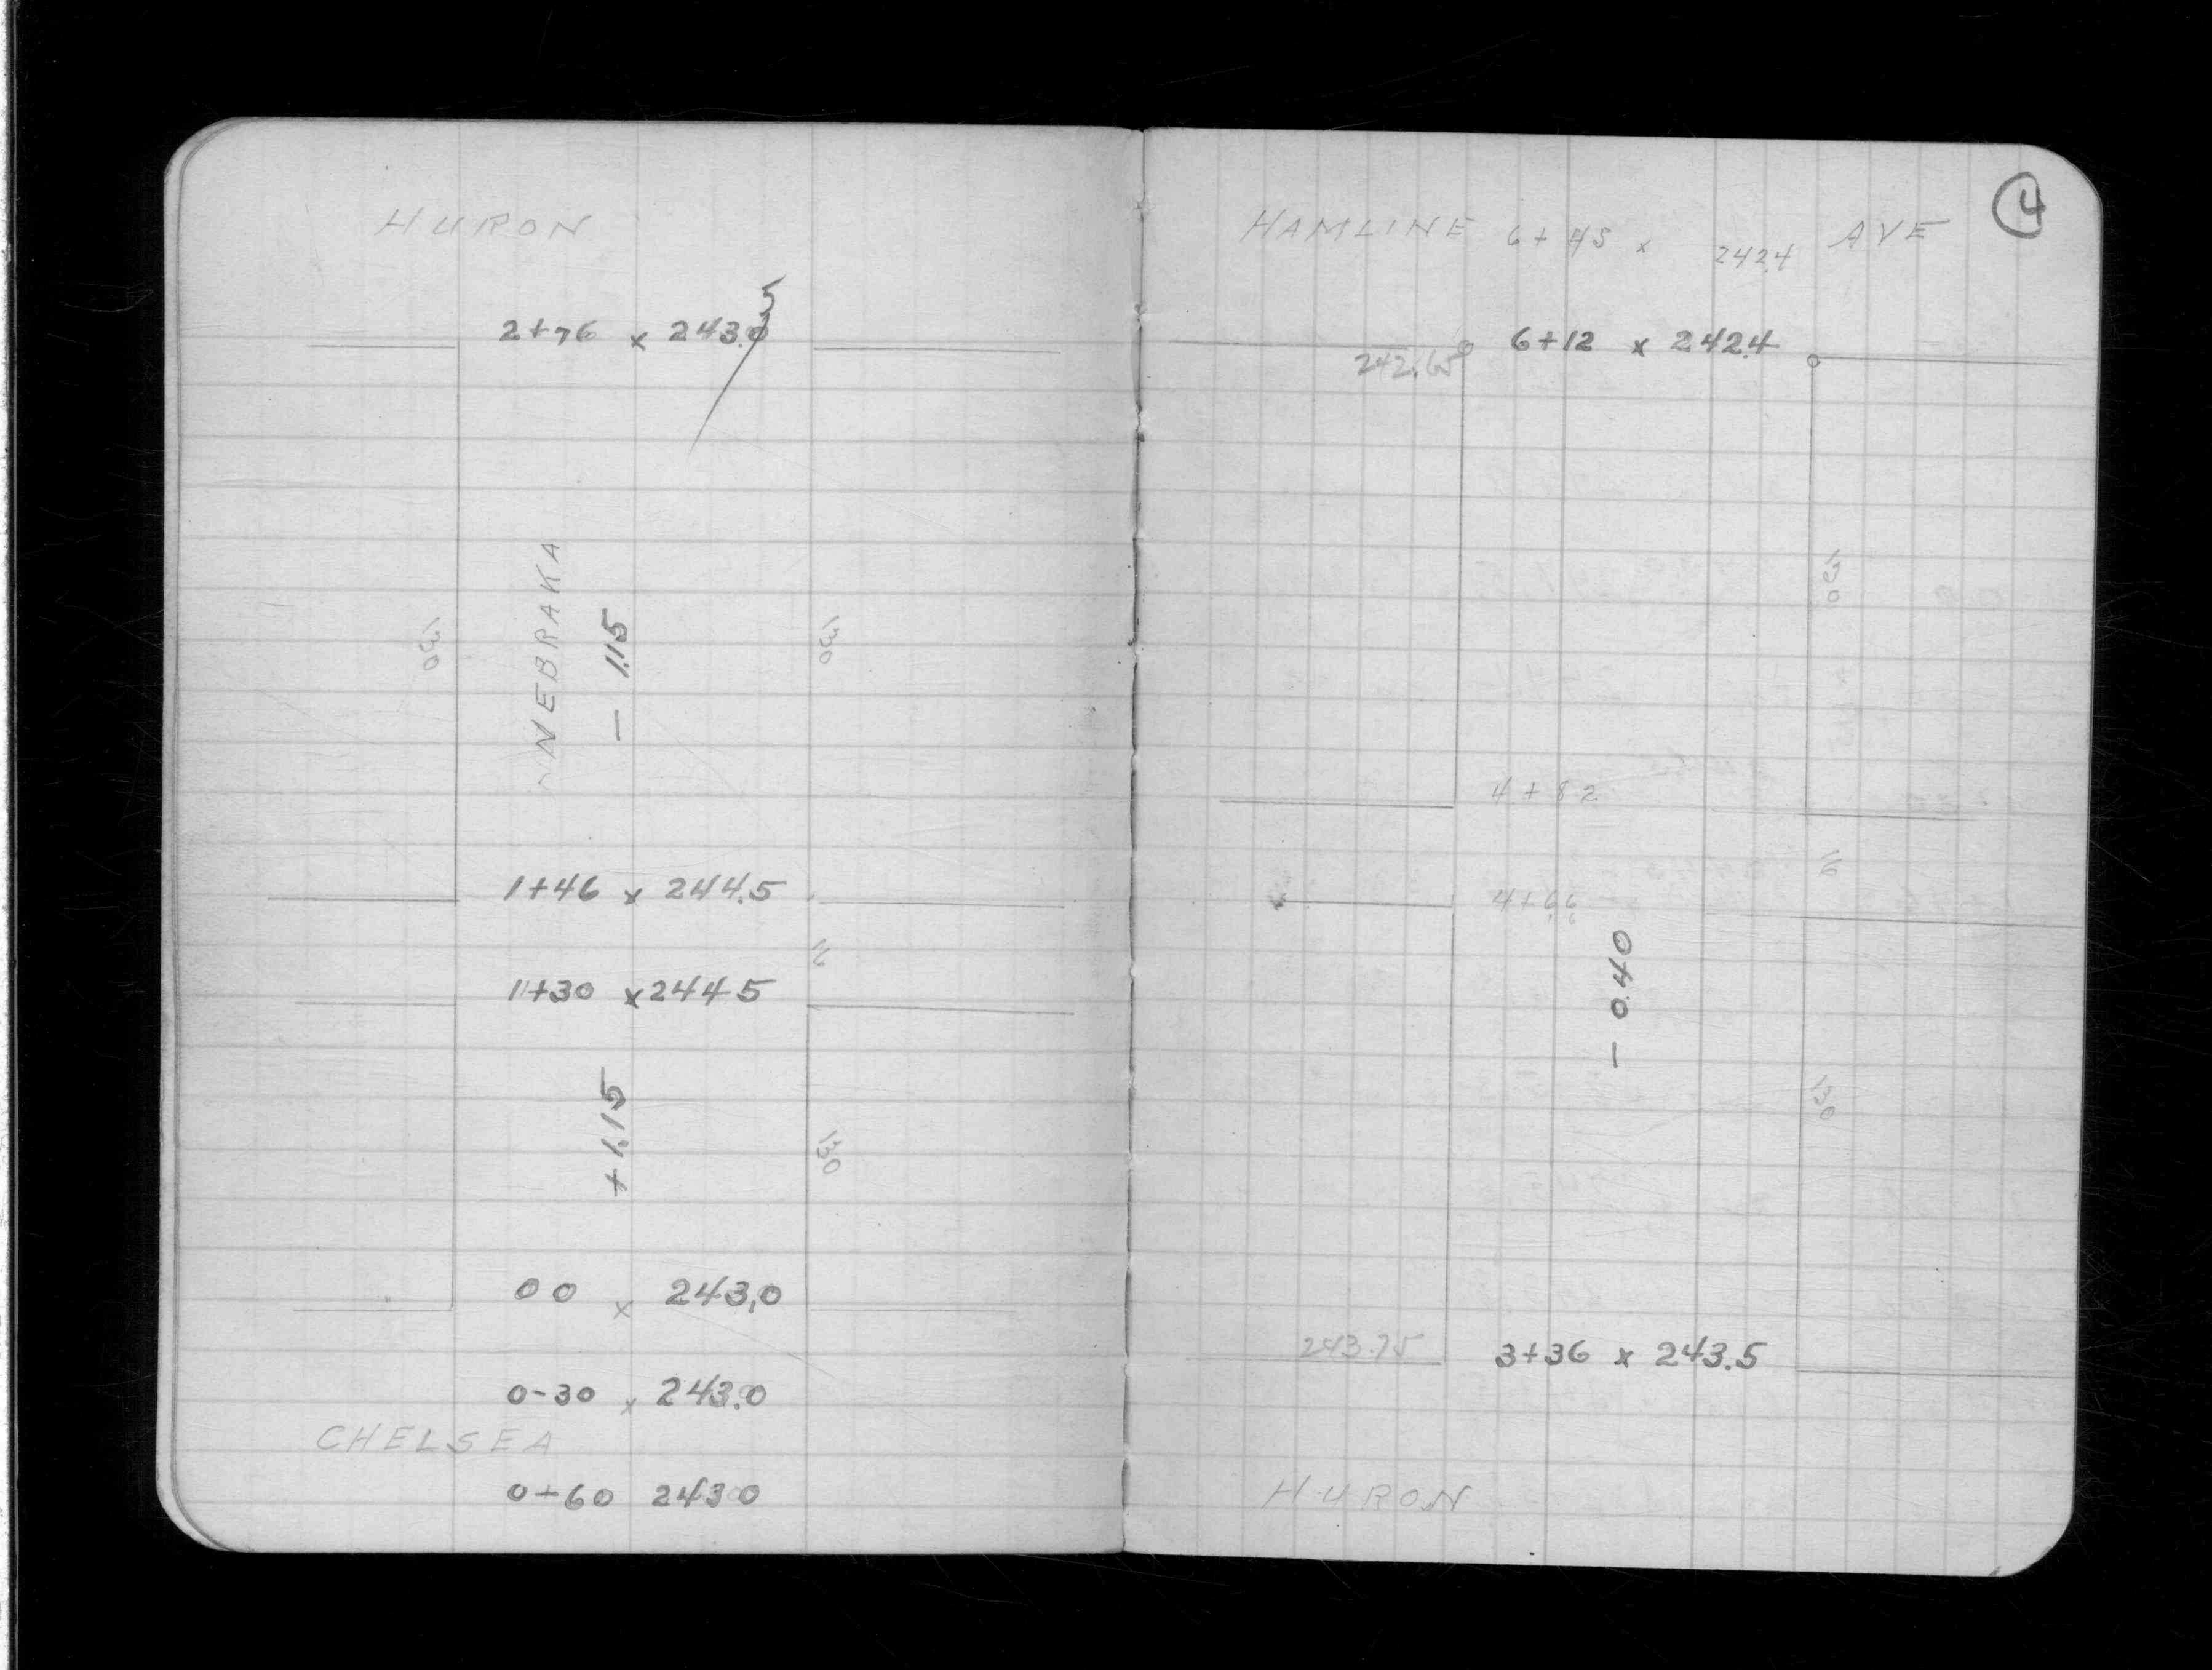 HURON
5
2+76 x 243.0
130
130
NEBRAKA
- 1.15
1+46 x 244.5
16
1+30 x 244 5
+ 1.15
130
00 x 243.0
0-30 x 243.0
CHELSEA
0-60 243 0
4
HAMLINE 6+45 x 242.4 AVE
242.65 6+12 x 242.4
130
4+82
16
4+66
- 0.40
130
243.75 3+36 x 243.5
HURON